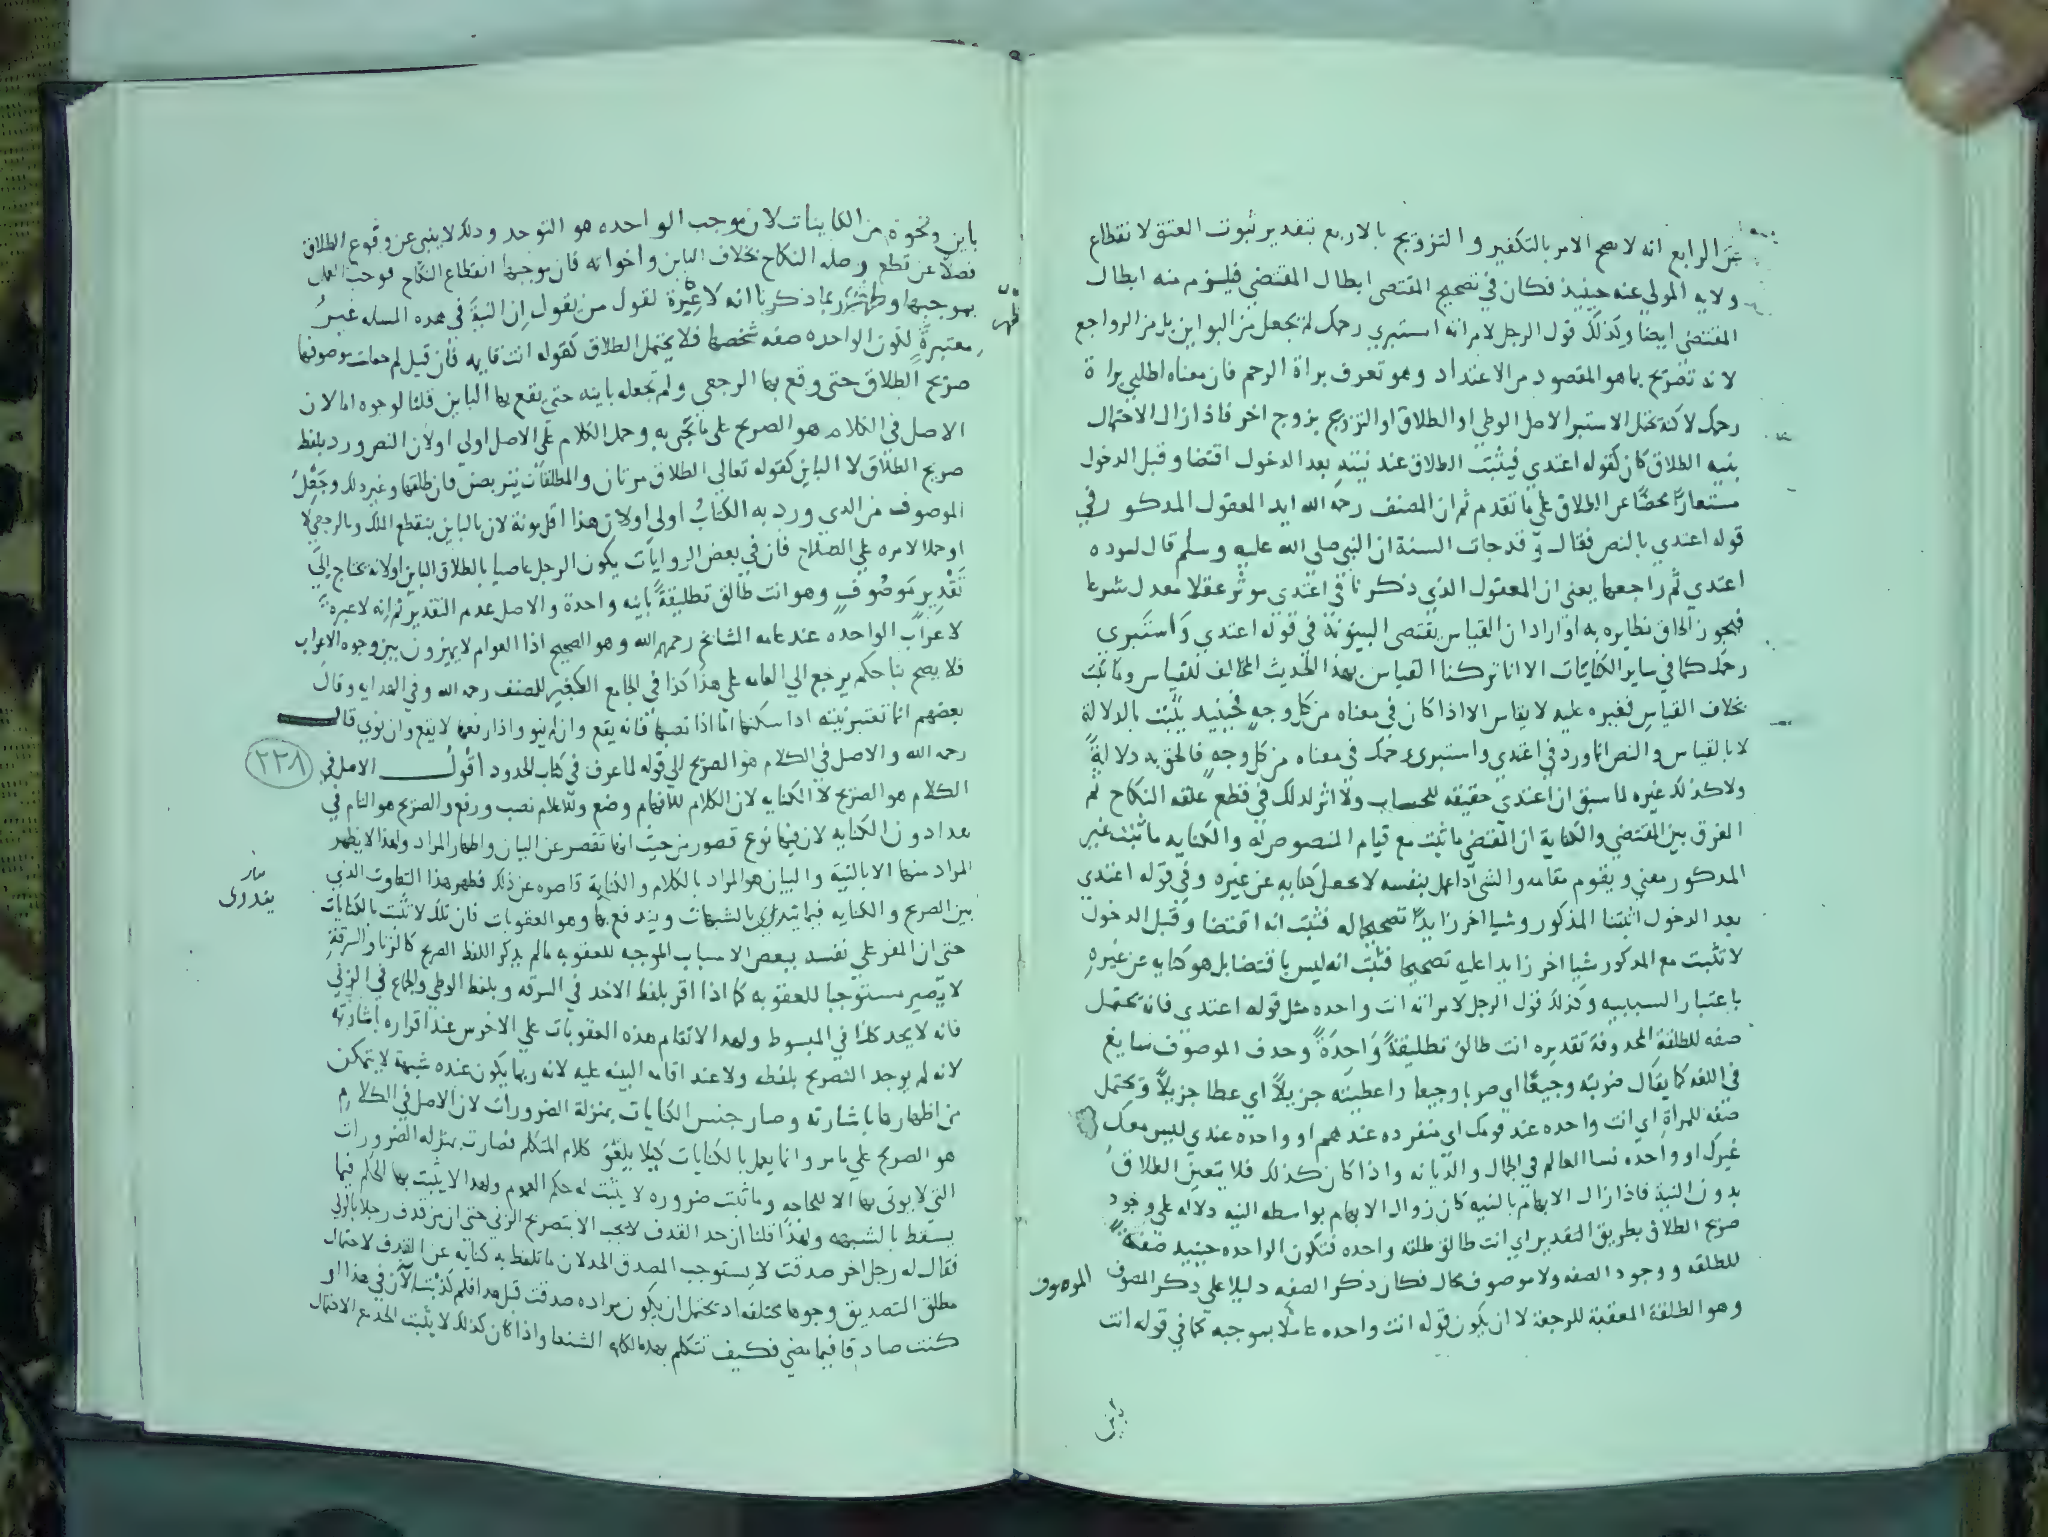 عن الرابع انه لا يصح الامر بالتكفير والتزويج بالاربع بتقدير ثبوت العتق لانقطاع
ولايه المولي عنه حينيذ فكان في تصحيح المقتضي ابطال المقتضي فيلزم منه ابطال
المقتضي ايضا وكذلك قول الرجل لامراته استبري رحمك لم يجعل من البواين بل من الرواجع
لانه تصريح بما هو المقصود من الاعتداد وهو تعرف براة الرحم فان معناه اطلبي براة
رحمك لاكنه يحتمل الاستبرا لاجل الوطي او الطلاق او التزويج بزوج اخر فاذا زال الاحتمال
بنيه الطلاق كان كقوله اعتدي فيثبت الطلاق عند نيته بعد الدخول اقتضا وقبل الدخول
مستعارًا محضًا عن الطلاق علي ما تقدم ثم ان المصنف رحمه الله ايد المعقول المدكور في
قوله اعتدي بالنص فقال وقد جات السنة ان النبي صلي الله عليه وسلم قال لسوده
اعتدي ثم راجعها يعني ان المعقول الذي ذكرنا في اعتدي موثر عقلا معدل شرعا
فيجوز الحاق نظايره به او اراد ان القياس يقتضي البينونة في قوله اعتدي واستبري
رحمك كما في ساير الكنايات الا انا تركنا القياس بهذا الحديث المخالف للقياس وما ثبت
بخلاف القياس فغيره عليه لا يقاس الا اذا كان في معناه من كل وجه فحينيد يثبت بالدلالة
لا بالقياس والنص انما ورد في اعتدي واستبري رحمك في معناه من كل وجه فالحق به دلالةً
ولا كذلك غيره لما سبق ان اعتدي حقيقه للحساب ولا اثر لدلك في قطع علقه النكاح ثم
الفرق بين المقتضي والكناية ان المقتضي ما ثبت مع قيام المنصوص له والكنايه ما ثبت غير
المدكور معني ويقوم مقامه والشي اذا عمل بنفسه لا يجعل كنايه عن غيره وفي قوله اعتدي
بعد الدخول اثبتنا المذكور وشيا اخر زايدًا تصحيحا له فثبت انه اقتضا وقبل الدخول
لا تثبت مع المدكور شيا اخر زايدا عليه تصحيحا فثبت انه ليس باقتضا بل هو كنايه عن غيره
باعتبار السببيه وكذلك قول الرجل لامراته انت واحده مثل قوله اعتدي فانه يحتمل
صفه للطلقة المحدوفة تقديره انت طالق تطليقةً وَاحِدَةً وحدف الموصوف سايغ
في اللغه كما يقال ضربته وجيعًا اي ضربا وجيعا واعطيته جزيلاً اي عطا جزيلاً ويحتمل
صفه للمراة اي انت واحده عند قومك اي منفرده عندهم او واحده عندي لليس معك
غيرك او واحده نسا العالم في الجمال والديانه واذا كان كذلك فلا يتعين الطلاق
بدون النية فاذا زال الابهام بالنيه كان زوال الابهام بواسطه النيه دلاله علي وجود
صريح الطلاق بطريق التقدير اي انت طالق طلقه واحده فتكون الواحده حينيد صفةً
للطلقه ووجود الصفه ولا موصوف محال فكان ذكر الصفه دليلا علي ذكر الموصوف
الموصوف
وهو الطلقة المعقبة للرجعة لا ان يكون قوله انت واحده عاملًا بموجبه كما في قوله انت
باين
باين ونحوه من الكنايات لان موجب الواحده هو التوحد ودلك لا ينبي عن وقوع الطلاق
فضلا عن قطع وصله النكاح بخلاف الباين واخواته فان موجبها انقطاع النكاح فوجب العمل
بموجبها وظهر بما ذكرنا انه لا عبرة لقول من يقول ان النية في هده المسله غير
معتبرة لكون الواحده صفه شخصها فلا يحتمل الطلاق كقوله انت قايمه فان قيل لم جعلت موصوفها
صريح الطلاق حتي وقع بها الرجعي ولم تجعله باينه حتي يقع بها الباين قلنا لوجوه اما لان
الاصل في الكلام هو الصريح علي ما يجي به وحمل الكلام علي الاصل اولي او لان النص ورد بلفظ
صريح الطلاق لا الباين كقوله تعالي الطلاق مرتان والمطلقات يتربصن فان طلقها وغير دلك وجَعْلُ
الموصوف من الدي ورد به الكتاب اولي او لان هذا اقل مونة لان بالباين ينقطع الملك وبالرجعي لا
او حملا لامره علي الصلاح فان في بعض الروايات يكون الرجل عاصيا بالطلاق الباين او لانه يحتاج الي
تَقْدِيرِ مَوصُوفٍ وهو انت طالق تطليقةً باينه واحدة والاصل عدم التقدير ثم انه لا عبرة
لاعراب الواحده عند عامه المشايخ رحمهم الله وهو الصحيح اذا العوام لا يميزون بين وجوه الاعراب
فلا يصح بنا حكم يرجع الي العامه علي هذا كذا في الجامع الصغير للمصنف رحمه الله وفي الهدايه وقال
بعضهم انما تعتبر نيته اذا سكنها اما اذا نصبها فانه يقع وان لم ينو واذا رفعها لا يقع وان نوي قال
رحمه الله والاصل في الكلام هو الصريح الي قوله لما عرف في كتاب الحدود اقول الاصل في
٢٢٨
الكلام هو الصريح لا الكنايه لان الكلام للافهام وضع وللاعلام نصب ورفع والصريح هو التام في
هدا دون الكنايه لان فيها نوع قصور من حيث انها تقصر عن البيان واظهار المراد ولهدا لا يظهر
المراد منها الا بالنية والبيان هو المراد بالكلام والكناية قاصره عن ذلك فظهر هذا التفاوت الذي
بين الصريح والكنايه فيما يندري بالشبهات ويندفع بها وهو العقوبات فان تلك لا تثبت بالكنايات
حتي ان المقر علي نفسه ببعض الاسباب الموجبه للعقوبه مالم يدكر اللفظ الصريح كالزنا والسرقة
لا يصير مستوجبا للعقوبه كما اذا اقر بلفظ الاخد في السرقه وبلفظ الوطي والجماع في الزني
فانه لا يحد كذا في المبسوط ولهدا لا تقام هده العقوبات علي الاخرس عند اقراره باشارته
لانه لم يوجد التصريح بلفظه ولا عند اقامه البينه عليه لانه ربما يكون عنده شبهة لا يتمكن
من اظهارها باشارته وصار جنس الكنايات بمنزلة الضرورات لان الاصل في الكلام
هو الصريح علي ما مر وانما يعمل بالكنايات كيلا يلغو كلام المتكلم فصارت بمنزله الضرورات
التي لا يوتي بها الا للحاجه وما ثبت ضروره لا يثبت له حكم العموم ولهدا لا يثبت بها الحكم فيما
يسقط بالشبهه ولهذا قلنا ان حد القدف لا يجب الا بتصريح الزني حتي ان من قدف رجلا بالزني
فقال له رجل اخر صدقت لا يستوجب المصدق الحد لان ما تلفظ به كنايه عن القدف لاحتمال
مطلق التصديق وجوها مختلفه اد يحتمل ان يكون مراده صدقت قبل هدا فلم كذبت الان في هذا او
كنت صادقا فيما مضي فكيف تتكلم بهده الكلمه الشنعا واذا كان كذلك لا يثبت الحد مع الاحتمال